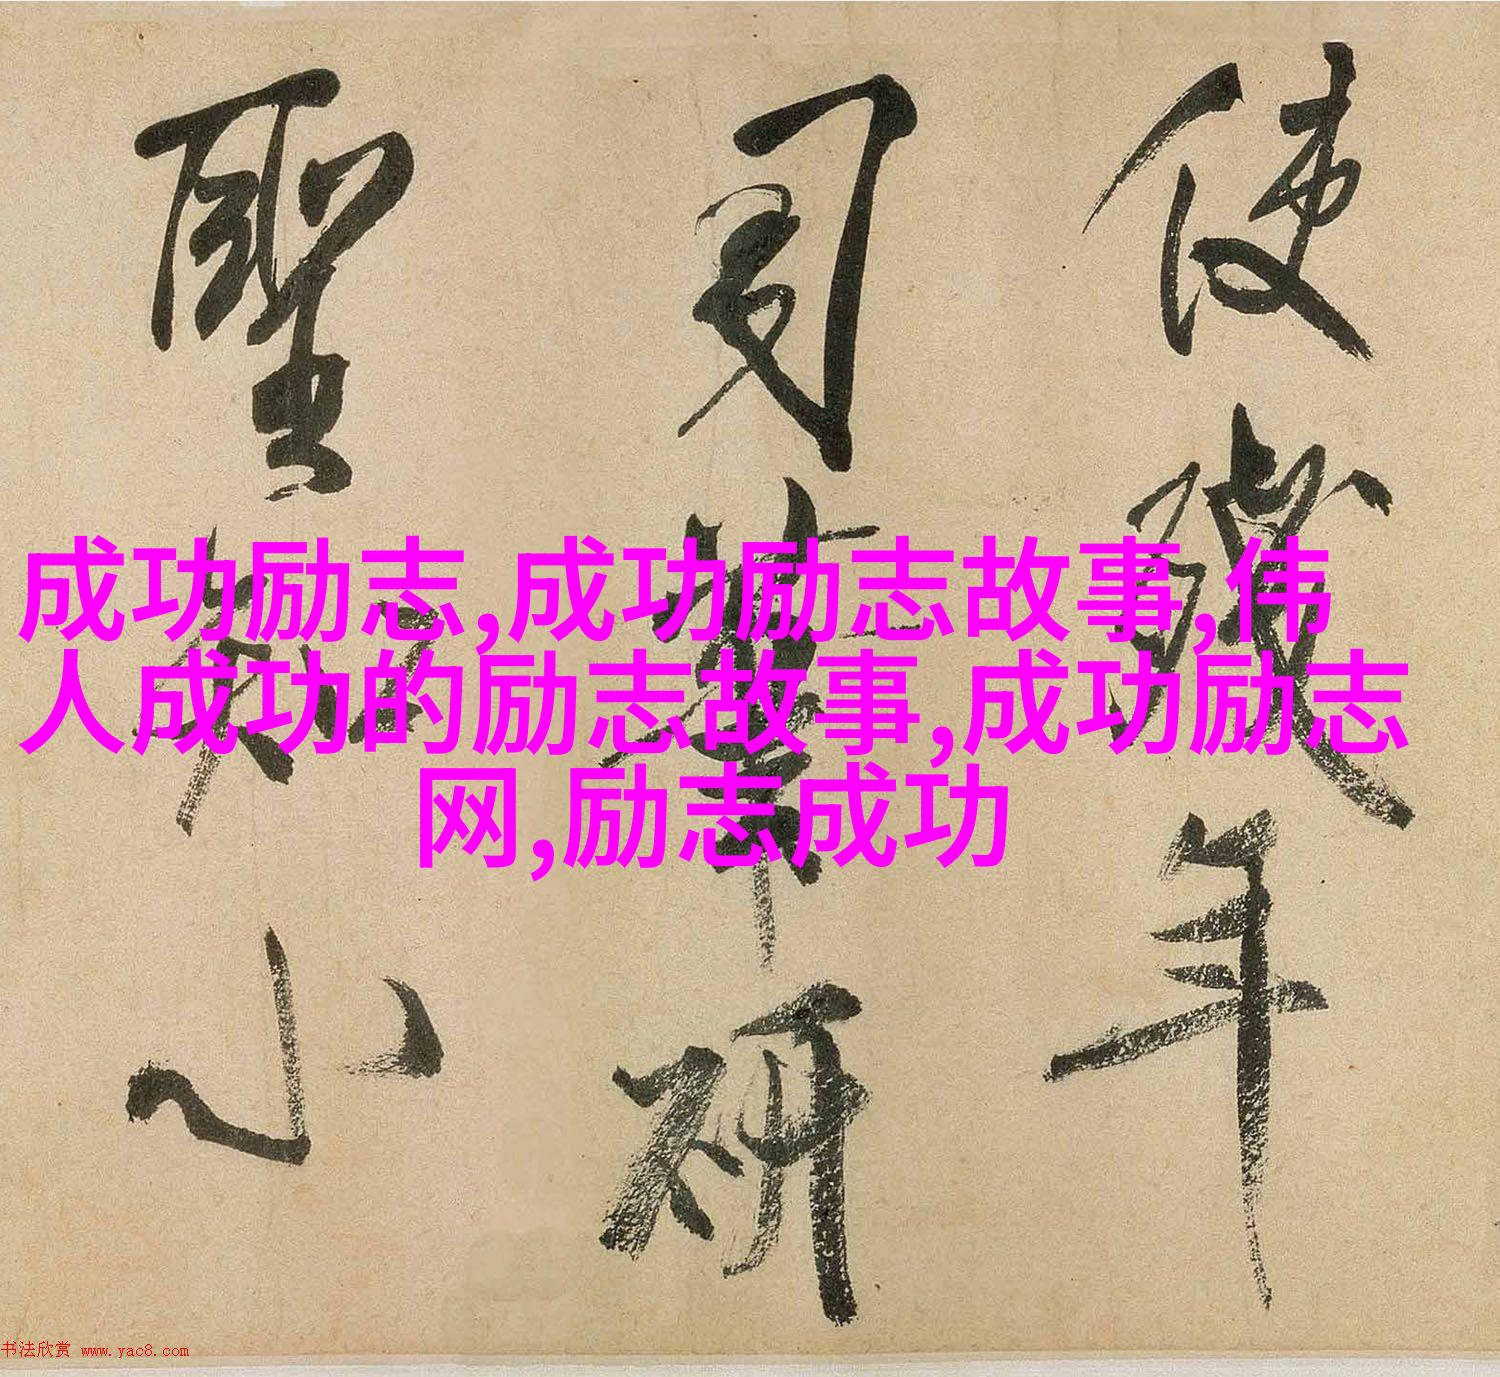 使殘年
司筆研
聖知小
成功励志,成功励志故事,伟
人成功的励志故事,成功励志
网,励志成功
书法欣赏 www.yac8.com